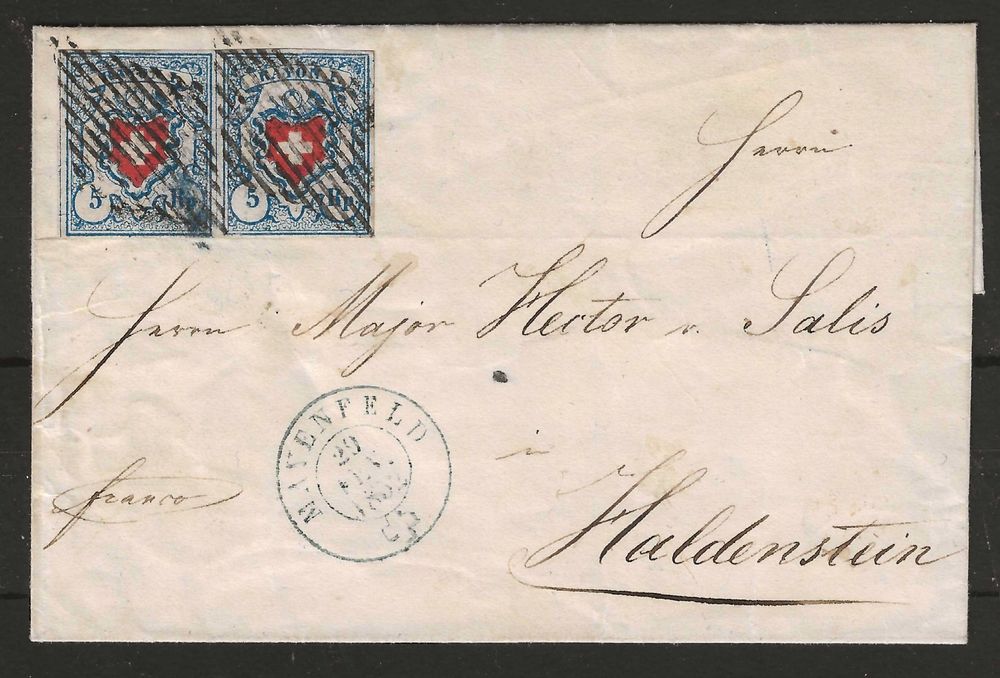 RAYON
5 Rp.
5 Rp.
Herrn
Herrn Major Hector v. Salis
MAYENFELD
29
i
franco
Haldenstein